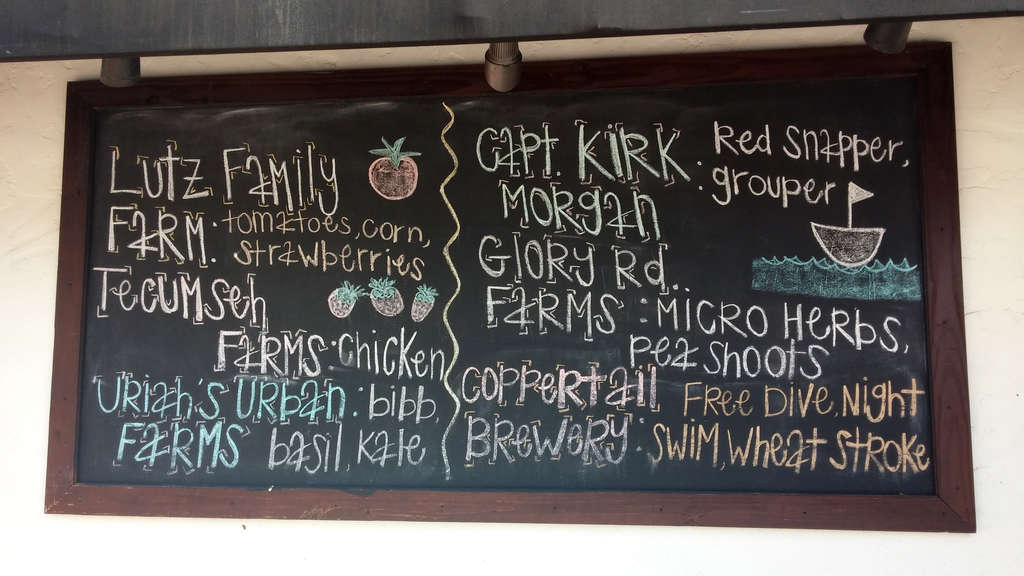 Lutz Family
Farm: tomatoes, corn,
strawberries
Tecumseh
Farms: chicken
Uriah's Urban: bibb,
Farms basil, kale
Capt. Kirk : Red Snapper,
Morgan grouper
Glory Rd.
Farms : Micro Herbs,
pea shoots
Coppertail Free Dive, Night
Brewery: Swim, Wheat Stroke